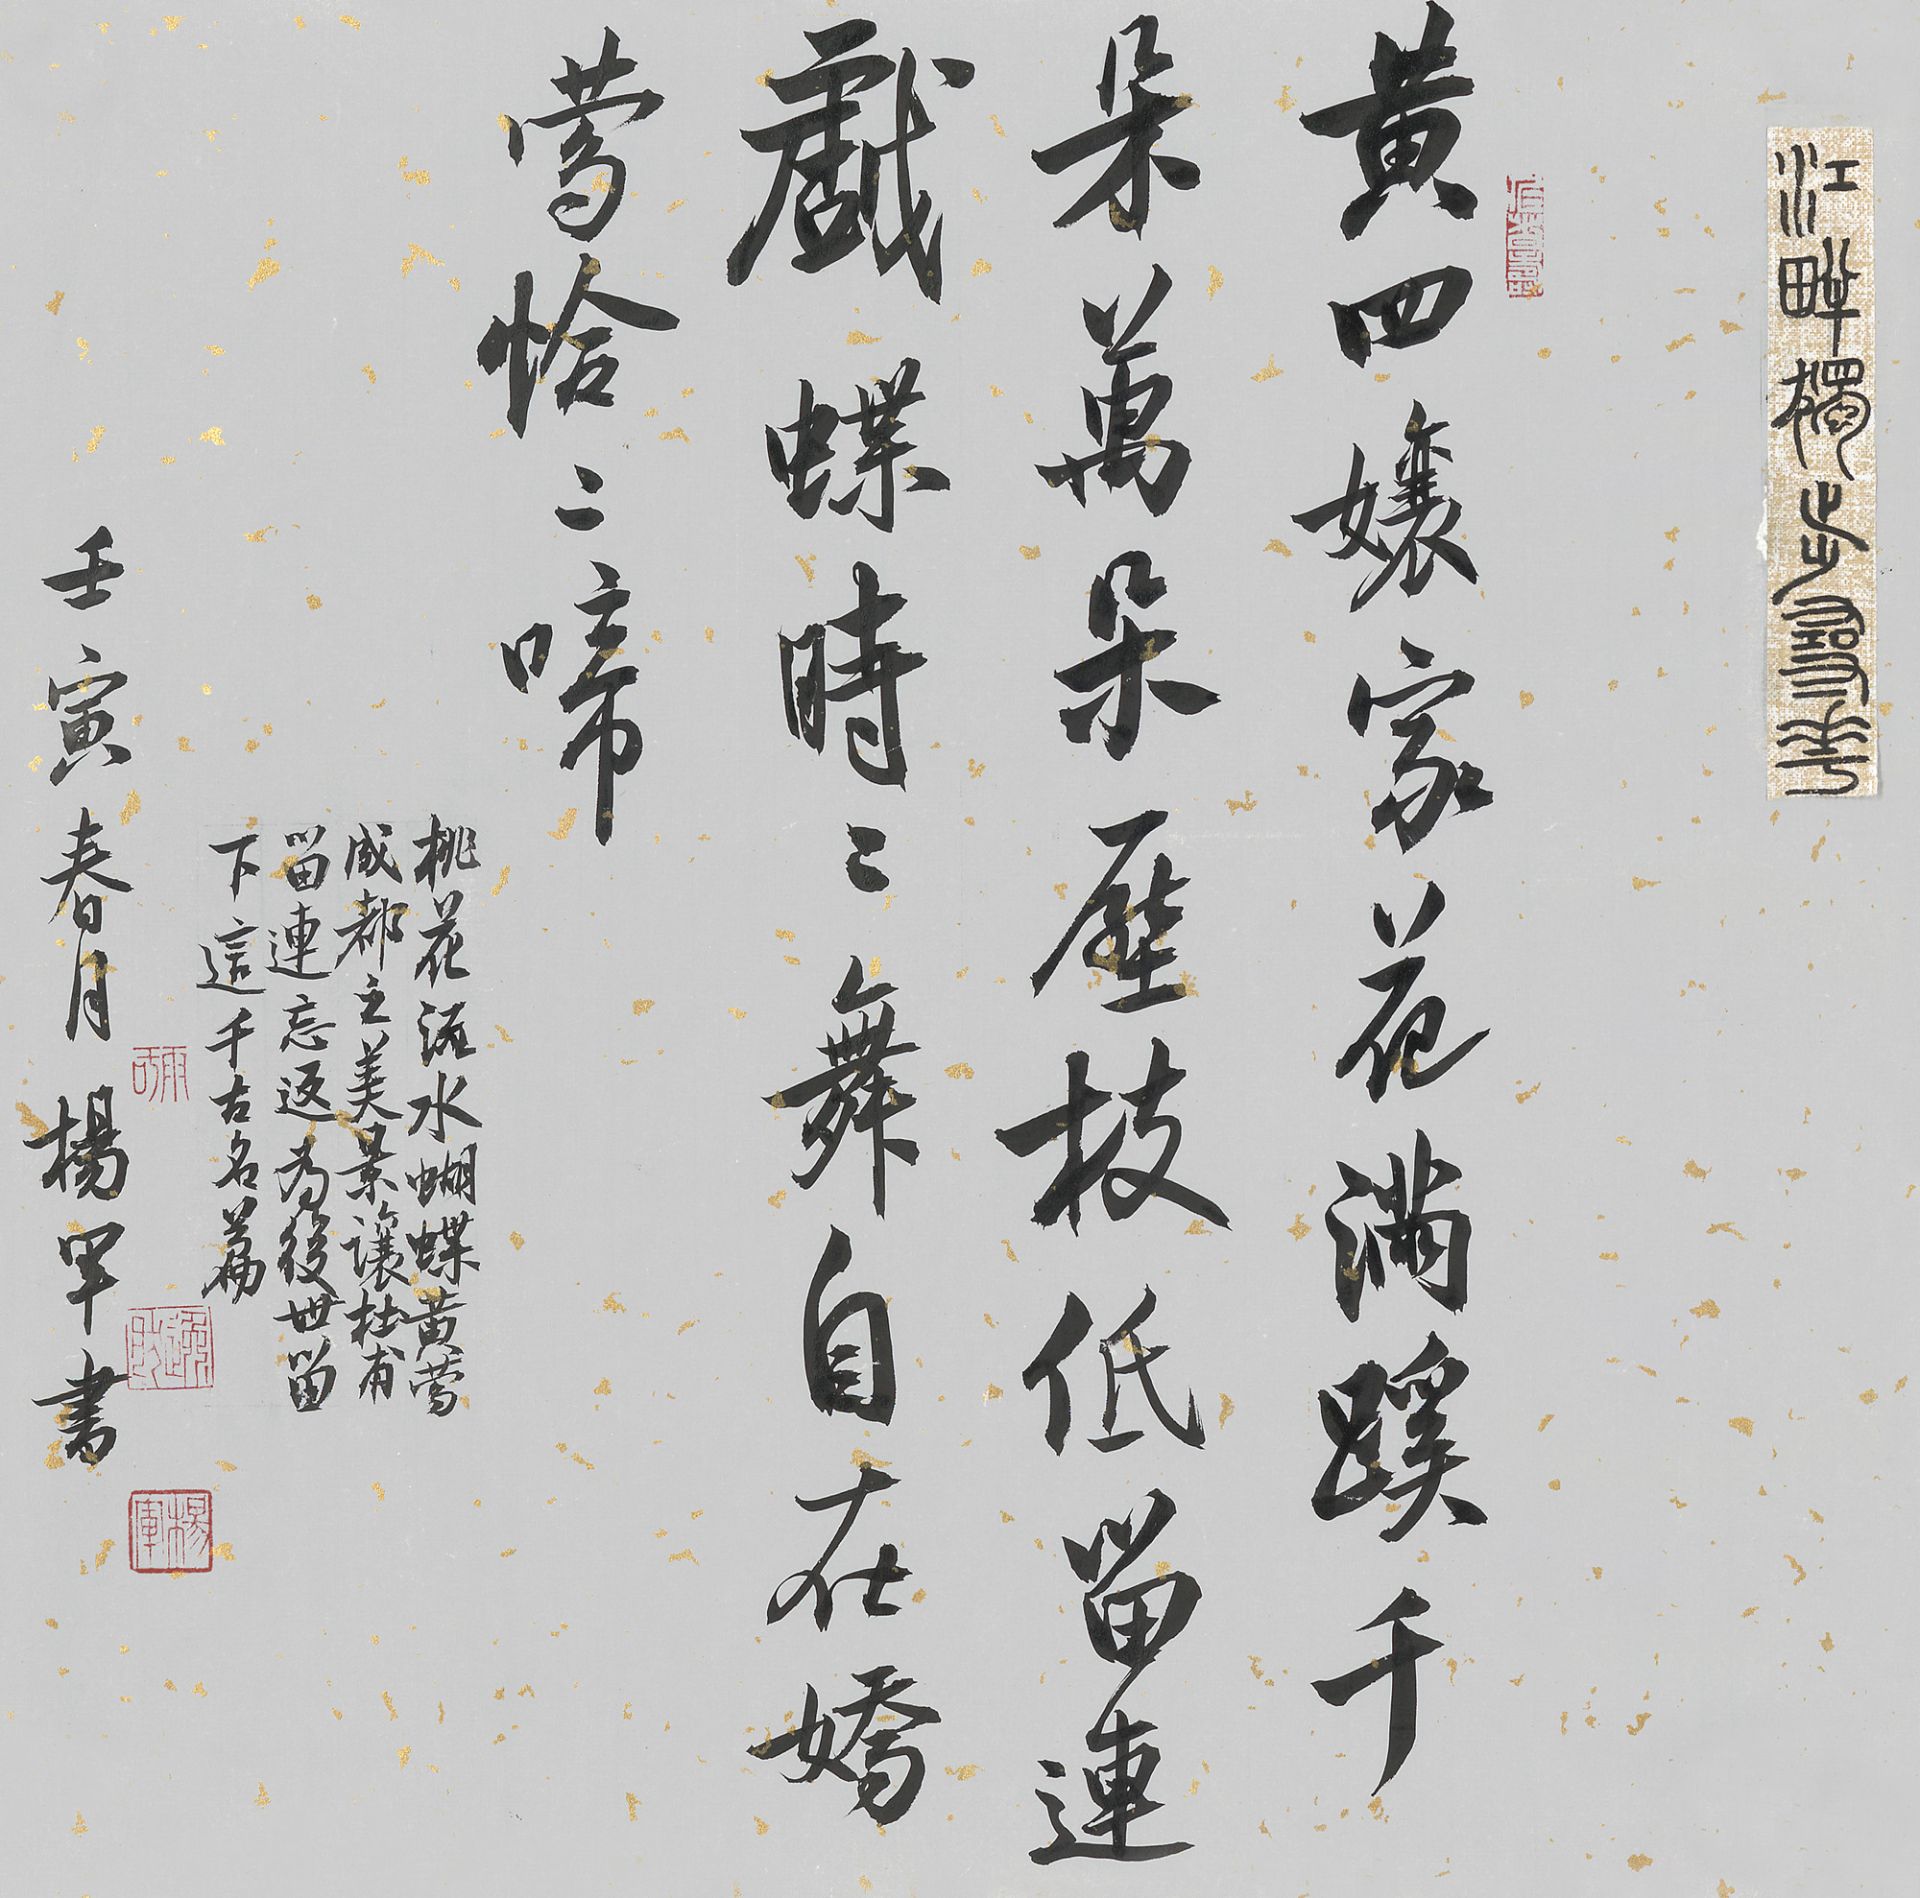 江畔獨步尋花
黄四孃家花滿蹊千
朵萬朵壓枝低留連
戲蝶時〻舞自在嬌
鶯恰〻啼
桃花流水蝴蝶黄鶯
成都之美景讓杜甫
留連忘返為後世留
下這千古名篇
壬寅春月楊罕書
楊軍